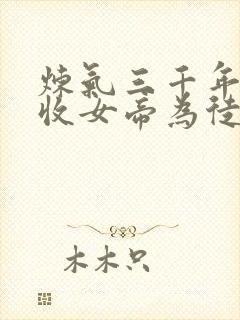 煉氣三千年
收女帝為徒
木木只